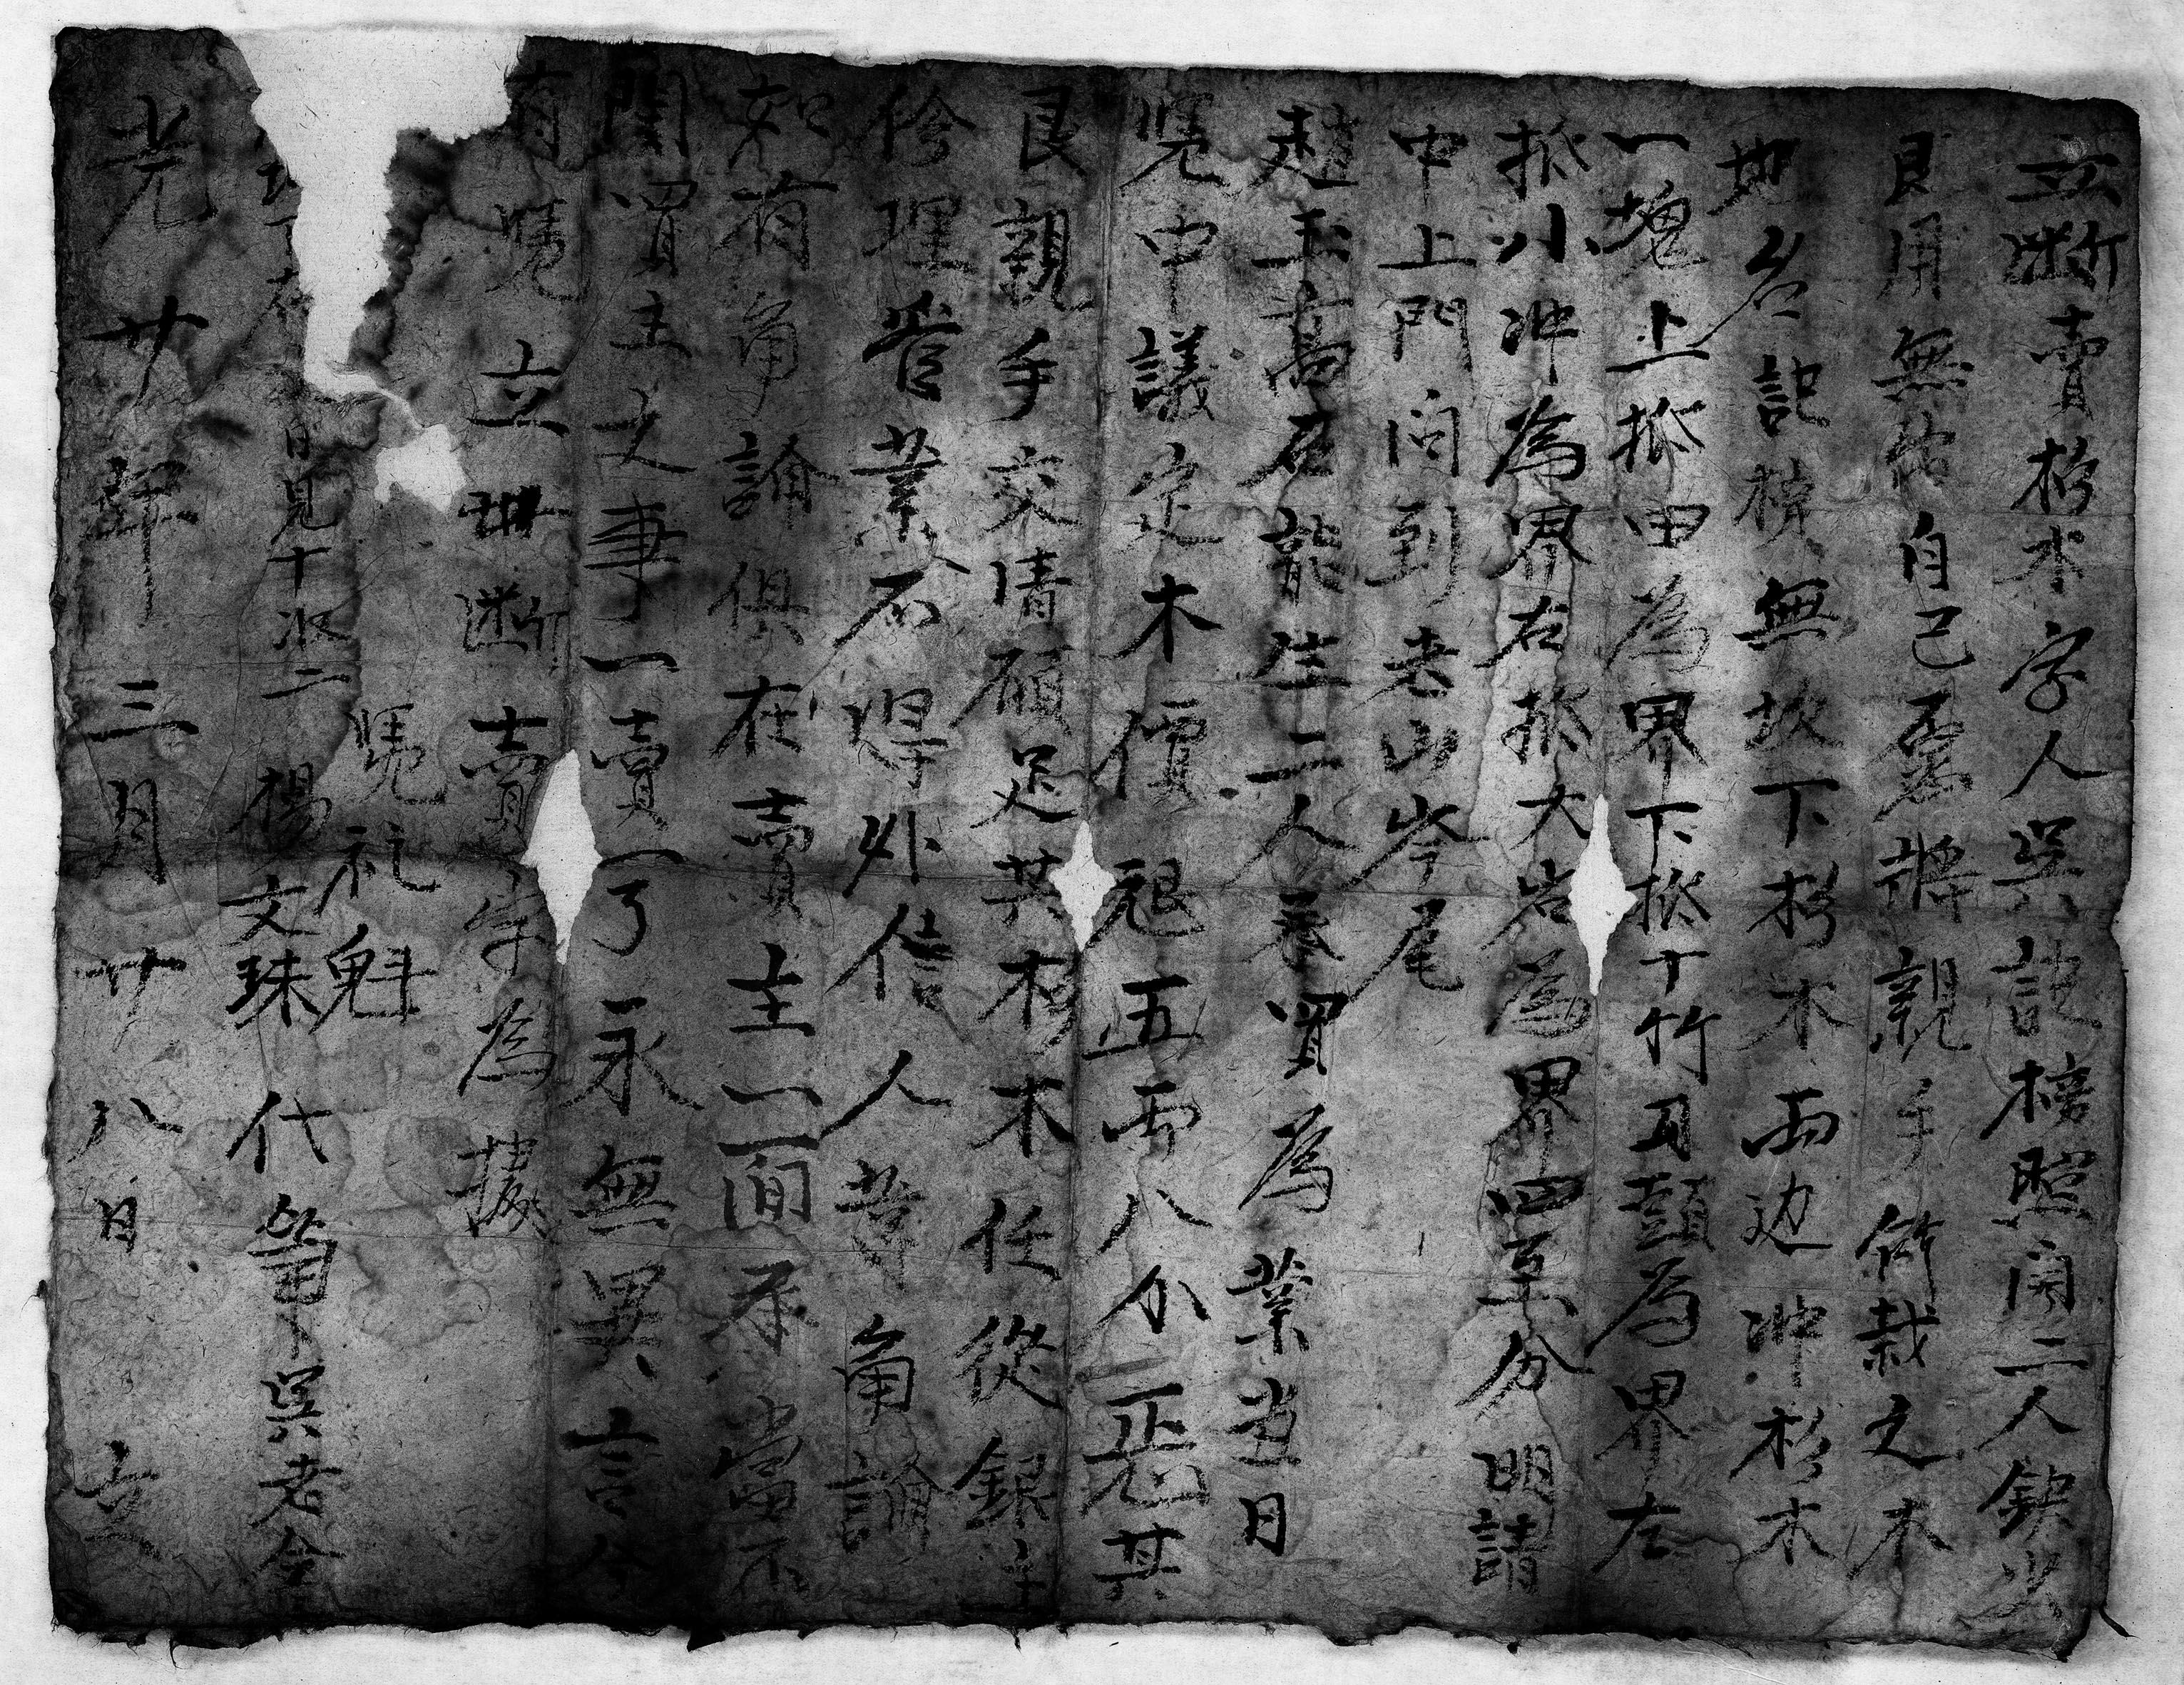 立断賣杉木字人吴記榜照開二人缺少
艮用無 自己 將親手 栽之木
地名記榜無坎下杉木両边冲杉木
一塊上抵田為界下抵丁竹 為界左
抵小冲為界右抵大岩為界四至分明請
中上門问到老山岑尾
趙玉高石龍生二人 買為業当日
凴中議定木價 五両八分正其
艮親手交清碩足其杉木任從銀主
修理管業不得外信人等争論
如有争論俱在賣主一面承當不
関買主之事一賣一了永無異言今
有凴立此断賣字為據
凴礼魁
日見十収二楊文珠代筆吴老全
光 廿年三月廿八日立